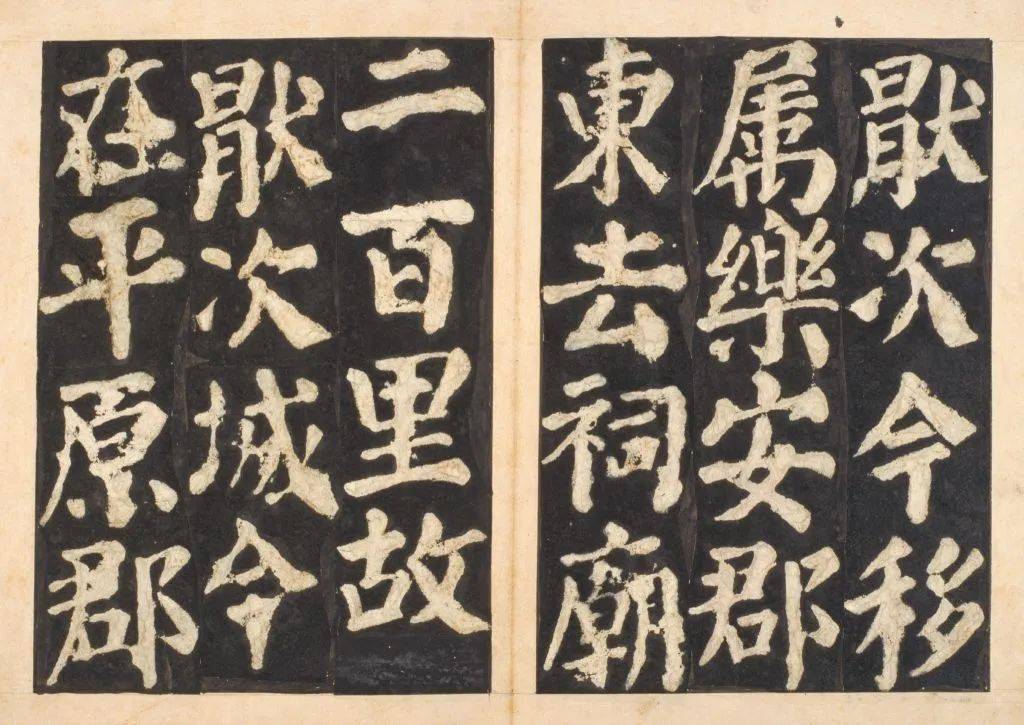 厭次今移
属樂安郡
東去祠廟
二百里故
厭次城今
在平原郡